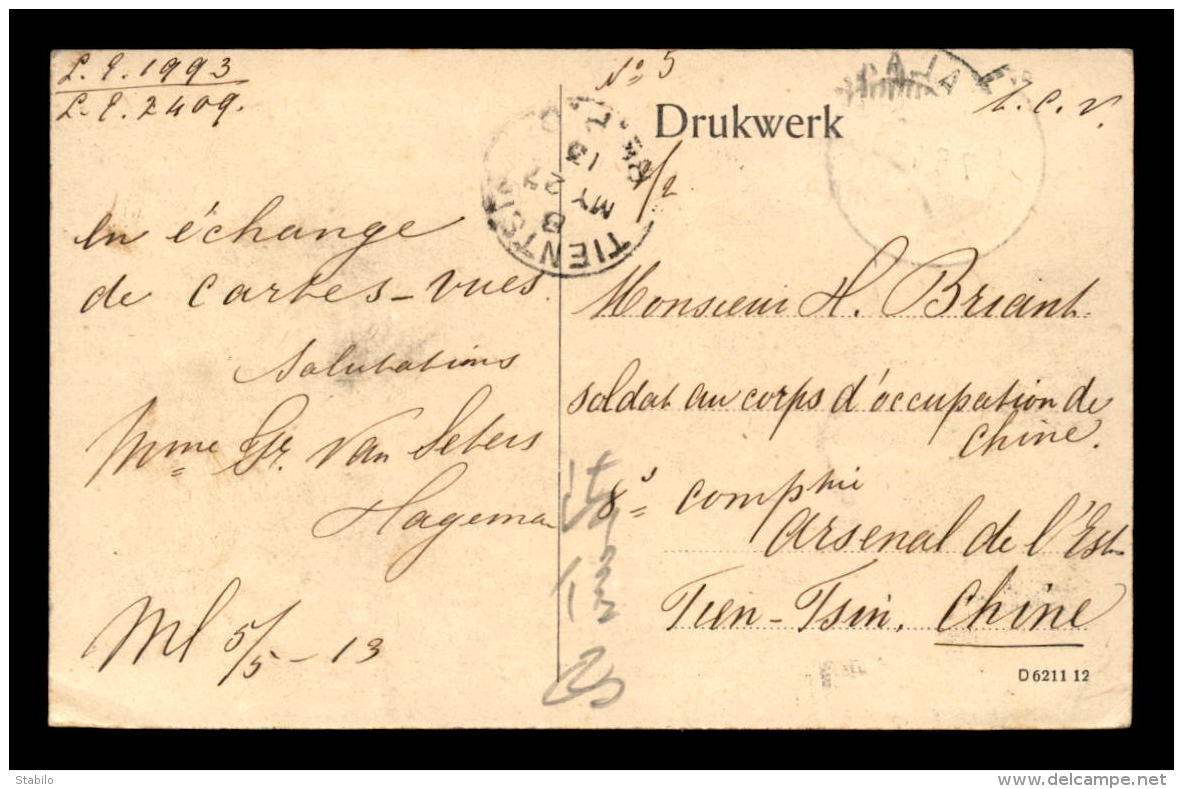 L. E. 1993
L. E. 2409.
En échange
de cartes-vues.
Salutations
Mme Gr. Van Seters
Hageman
Ml 5/5 - 13
No 5
Drukwerk
T. C. V.
TIENTSIN
B
MY 22
13
Monsieur H. Briant.
soldat au corps d'occupation de
Chine.
8e comphie
Arsenal de l'Est
Tien-Tsin. Chine
D 6211 12
Stabilo
delcampe.net